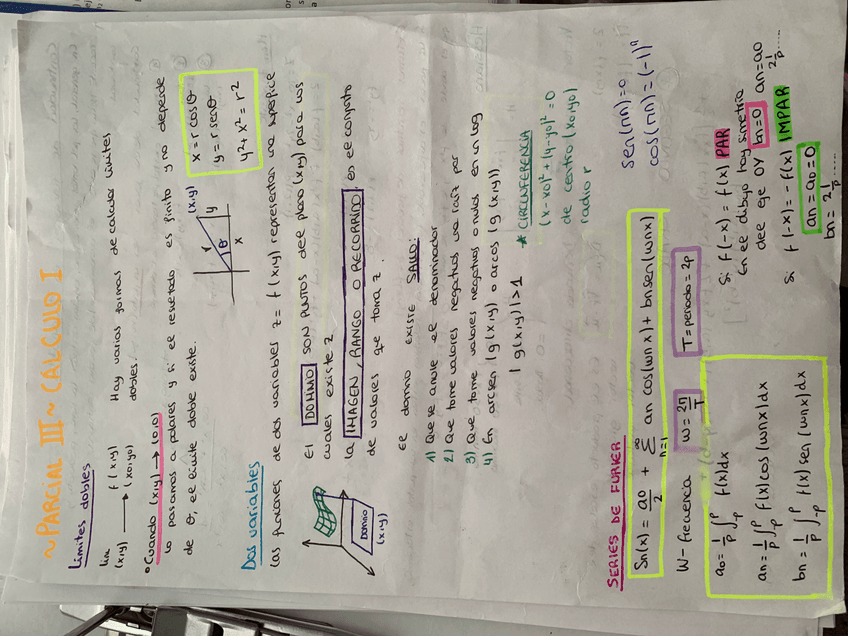 ~PARCIAL III~ CALCULO I
Límites dobles
lim f(x,y) Hay varias formas de calcular límites
(x,y) → (x0,y0) dobles.
• Cuando (x,y) → (0,0)
lo pasamos a polares y si el resultado es finito y no depende
de θ, el límite doble existe.
(x,y)
r
y
θ
x
x = r cos θ
y = r sen θ
y² + x² = r²
Dos variables
Las funciones de dos variables z = f(x,y) representan una superficie
El DOMINIO SON PUNTOS del plano (x,y) para los
cuales existe z
La IMAGEN, RANGO O RECORRIDO, es el conjunto
de valores que toma z.
Dominio
(x,y)
El dominio existe SALVO:
1) Que se anule el denominador
2) Que tome valores negativos una raíz par
3) Que tome valores negativos o nulos en un log
4) En arcsen |g(x,y) o arcos |g(x,y))
|g(x,y)|>1
* CIRCUNFERENCIA
(x-x0)² + (y-y0)² = 0
de centro (x0,y0)
radio r
SERIES DE FURIER
Sn(x) = a0/2 + ∞Σn=1 an cos(wnx) + bn sen(wnx)
sen(πn)=0
cos(πn) = (-1)ⁿ
W - frecuencia w = 2π/T T = periodo = 2p
a0 = 1/p ∫-p^p f(x)dx
an = 1/p ∫-p^p f(x)cos(wnx)dx
bn = 1/p ∫-p^p f(x) sen(wnx)dx
Si f(-x) = f(x) PAR
En el dibujo hay simetría
del eje OY bn=0 an=a0
2 1/p .....
Si f(-x) = -f(x) IMPAR
an = a0 = 0
bn = 2 1/p .....